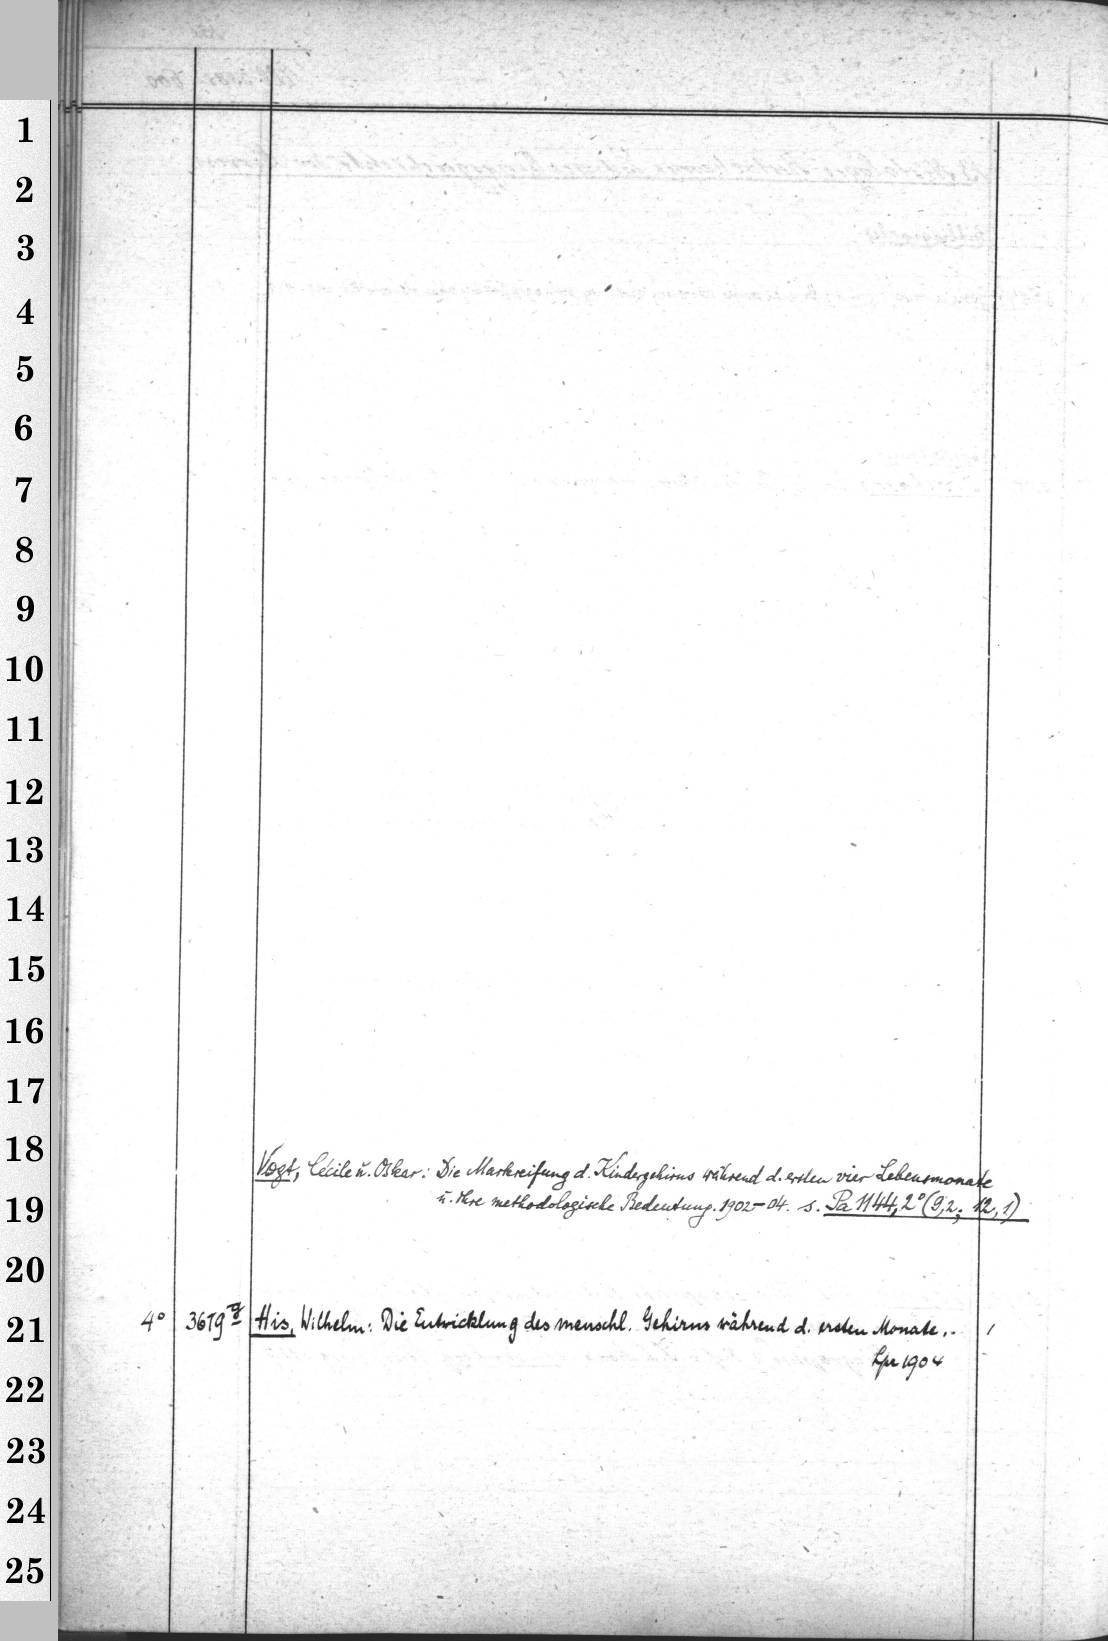 1
2
3
4
5
6
7
8
9
10
11
12
13
14
15
16
17
18
Vogt, Cécile u. Oskar: Die Markreifung d. Kindergehirns während d. ersten vier Lebensmonate
19
u. ihre methodologische Bedeutung. 1902-04. s. Pa 1144, 2° (9,2; 12,1)
20
21
4° 3679 g His, Wilhelm: Die Entwicklung des menschl. Gehirns während d. ersten Monate.. 1
Lpz 1904
22
23
24
25